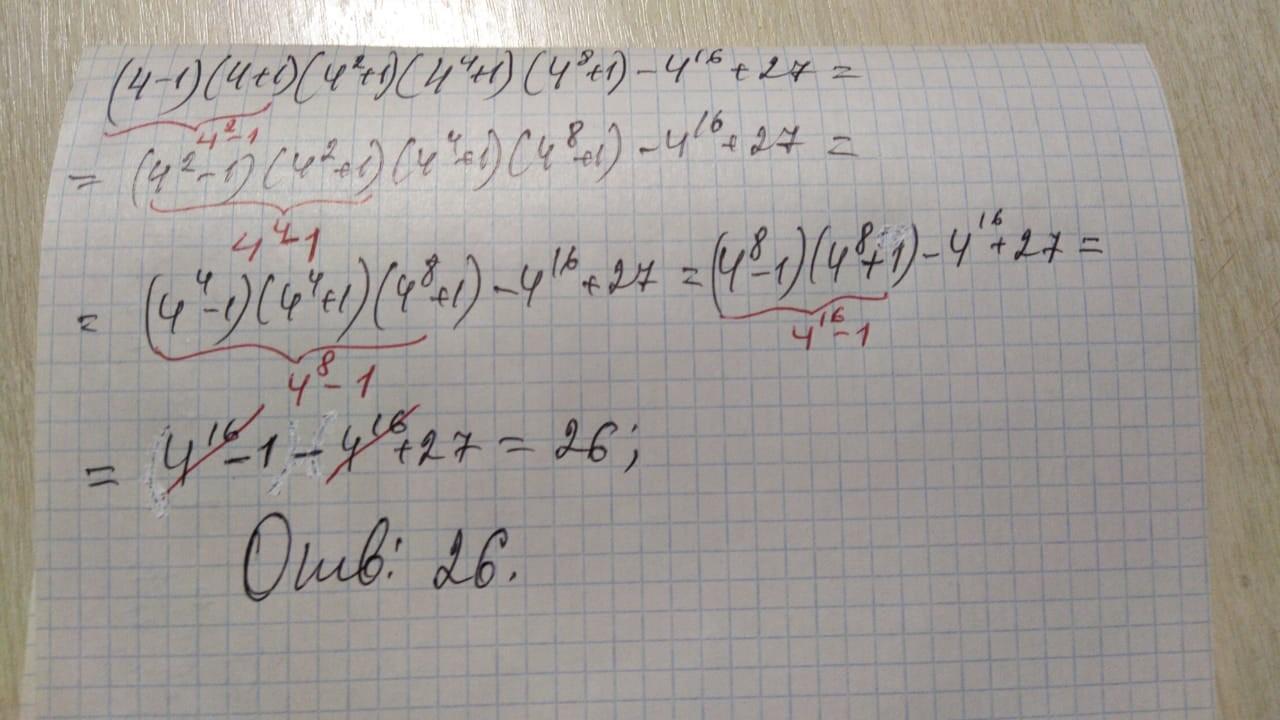 (4-1)(4+1)(4²+1)(4⁴+1)(4⁸+1) - 4¹⁶ + 27 =
4²-1
= (4²-1)(4²+1)(4⁴+1)(4⁸+1) - 4¹⁶ + 27 =
4⁴-1
= (4⁴-1)(4⁴+1)(4⁸+1) - 4¹⁶ + 27 = (4⁸-1)(4⁸+1) - 4¹⁶ + 27 =
4⁸-1 4¹⁶-1
= 4¹⁶ - 1 - 4¹⁶ + 27 = 26;
Отв: 26.